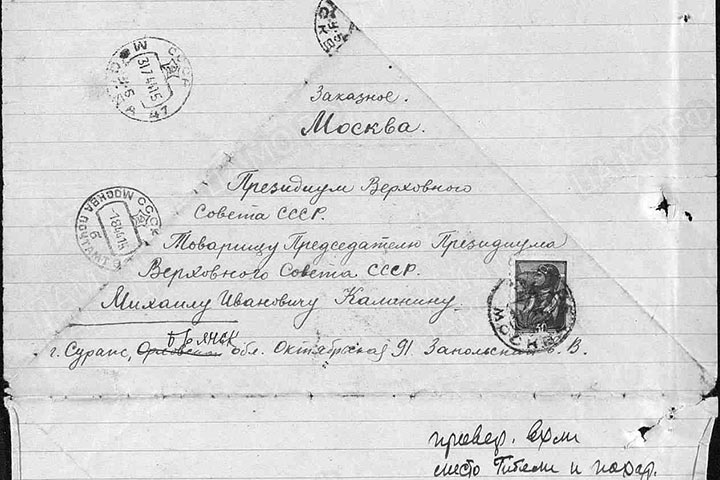 Заказное.
Москва.
Президиум Верховного
Совета СССР.
Товарищу Председателю Президиума
Верховного Совета СССР.
Михаилу Ивановичу Калинину.
Брянск
г. Сураж, Орловская обл. Октябрьская 91 Запольская В. В.
провер.
место Гибели и
СССР
31.7.44.15
МОСКВА СССР
-1.8.44.15
ПОЧТАМТ
МОСКВА